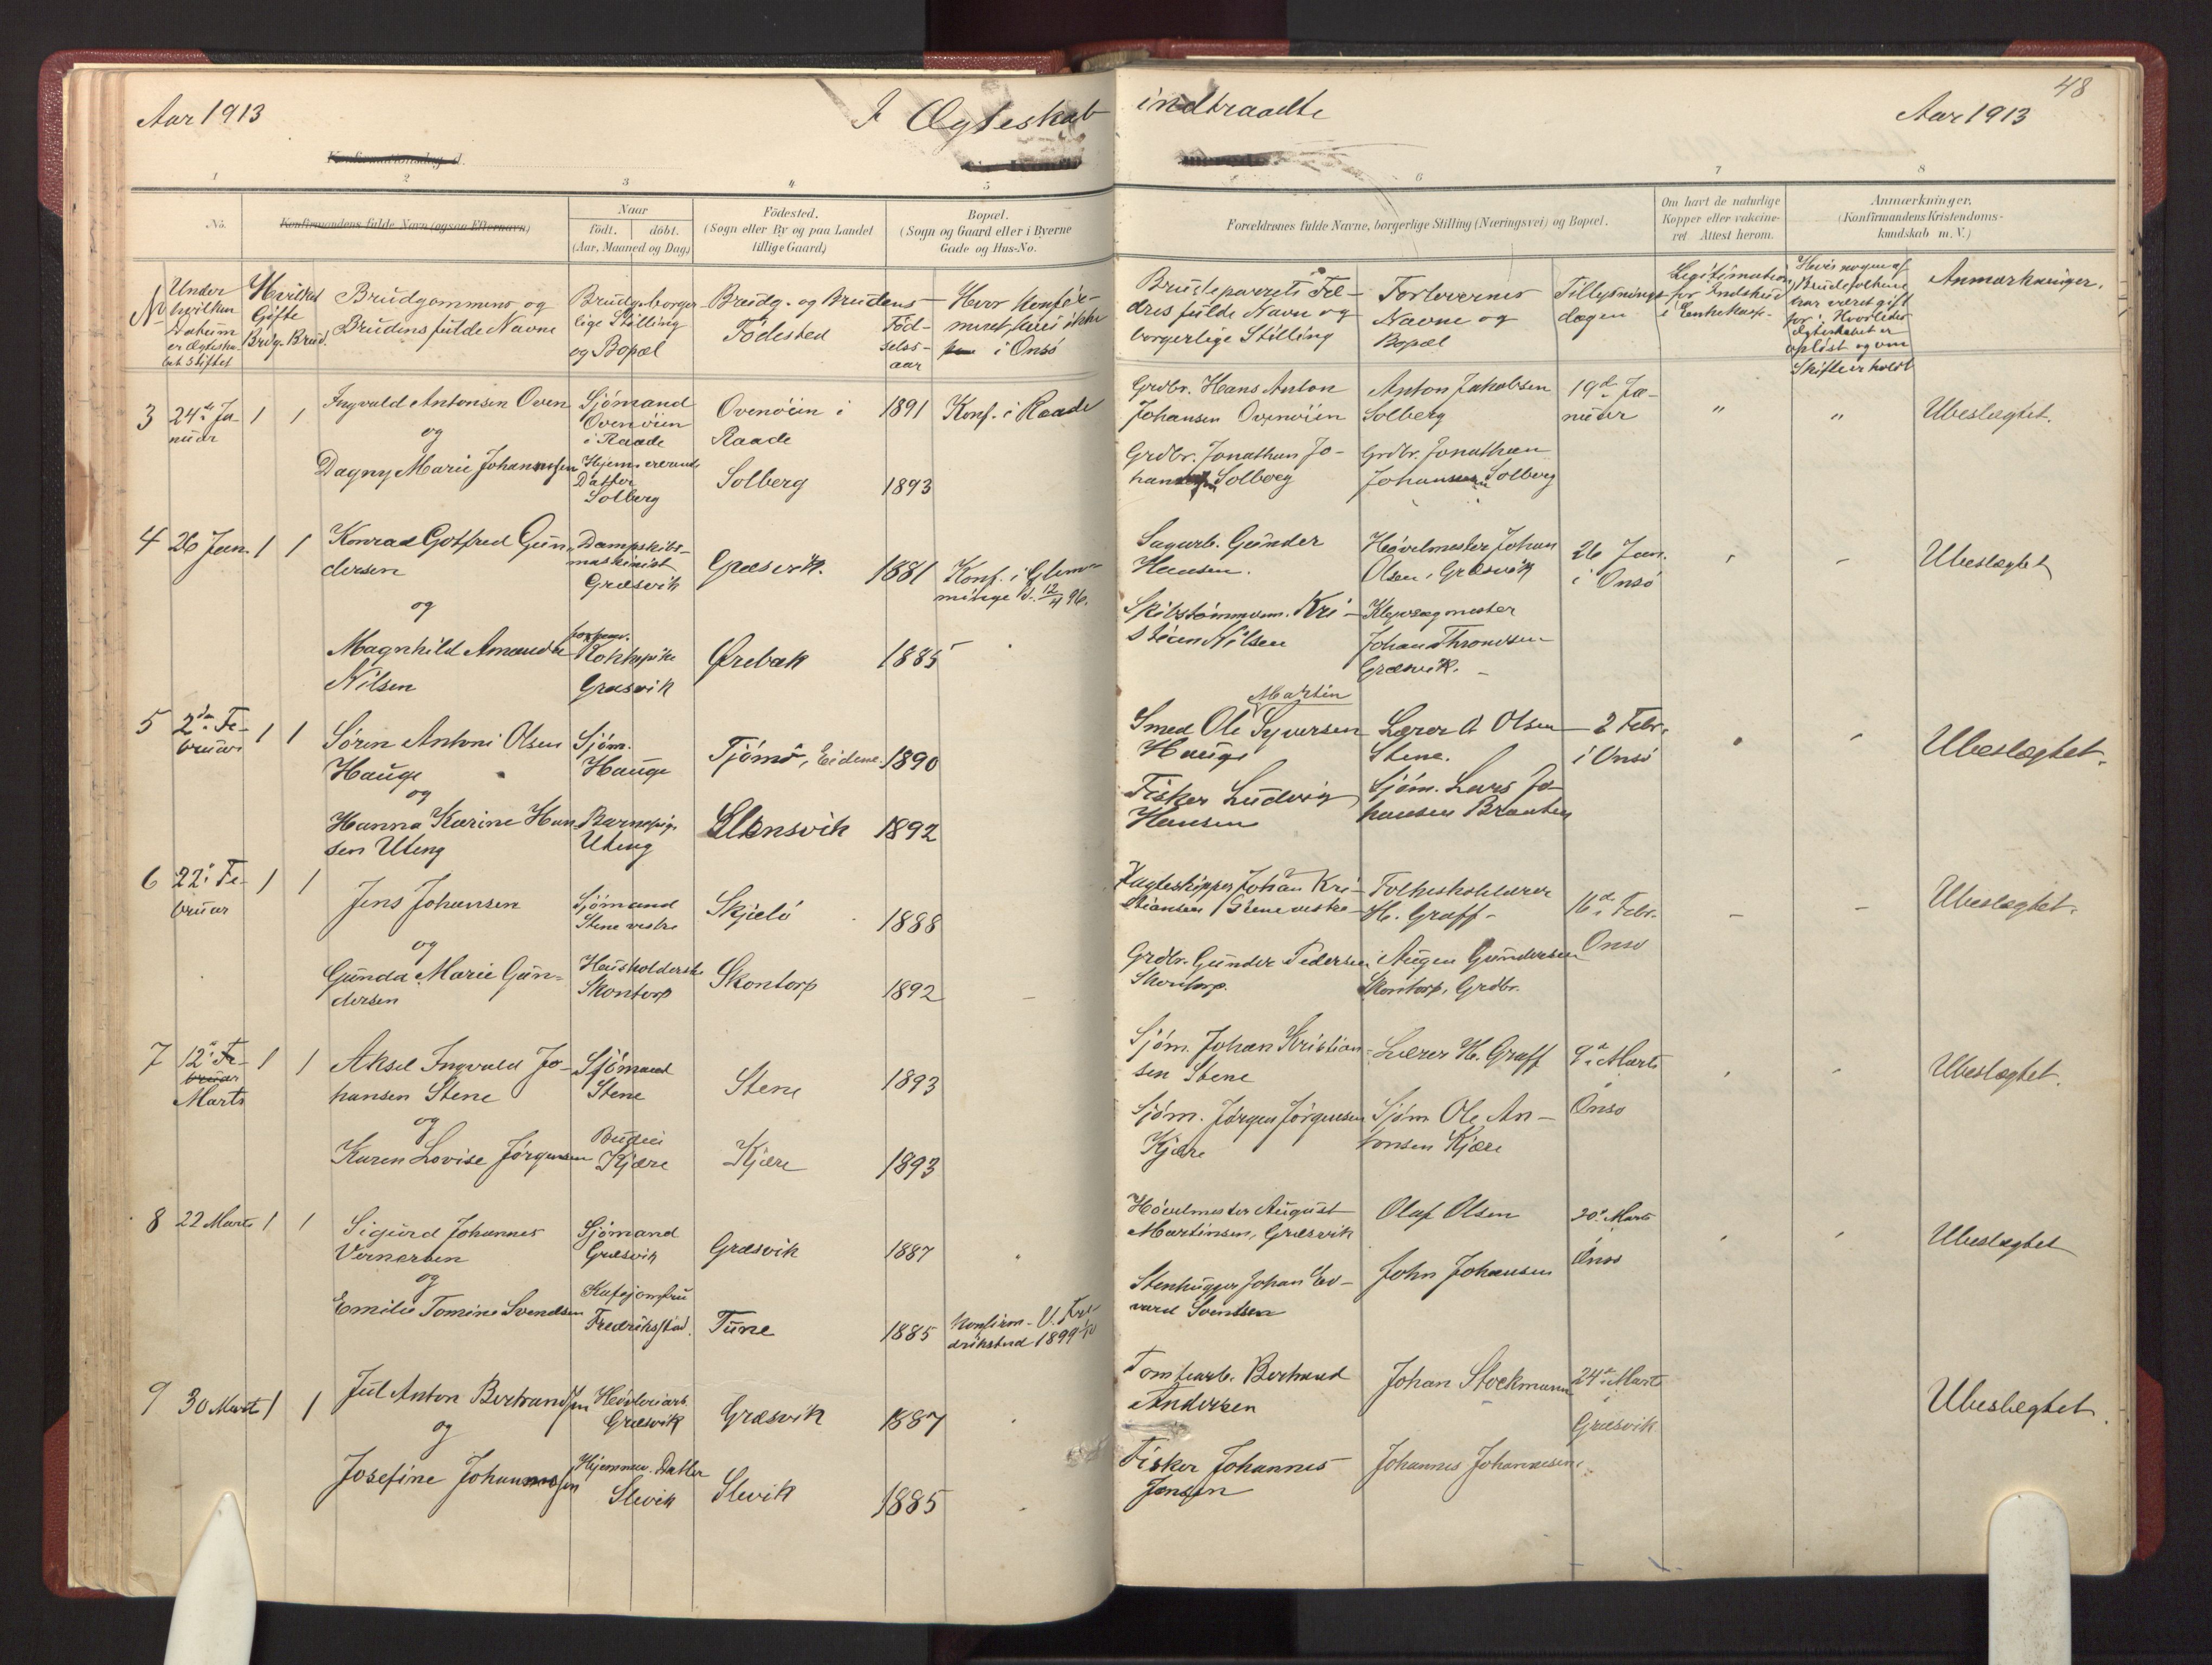 Aar 1913
I Ægteskab indtraadte
Aar 1913
48
Konfirmationsdag d.
1 2 3 4 5 6 7 8
No.
Konfirmandens fulde Navn (ogsaa Efternavn)
Naar
födt. döbt.
(Aar, Maaned og Dag)
Födested.
(Sogn eller By og paa Landet
tillige Gaard)
Bopæl.
(Sogn og Gaard eller i Byerne
Gade og Hus-No.
Forældrenes fulde Navne, borgerlige Stilling (Næringsvei) og Bopæl.
Om havt de naturlige
Kopper eller vaksine-
ret. Attest herom.
Anmærkninger.
(Konfirmandens Kristendoms-
kundskab m. V.)
No
Under
hvilken
Datum
er Ægteska-
bet stiftet
Hvilket
Gifte
Brdg. Brud.
Brudgommens og
Brudens fulde Navne
Brudg. borger-
lige Stilling
og Bopæl
Brudg. og Brudens
Födested
Föd-
sels-
aar
Hvor konfir-
meret hvis ikke
i Onsö
Brudeparrets Fæ-
dres fulde Navn og
borgerlige Stilling
Forlovernes
Navne og
Bopæl
Tillysnings-
dagen
Legitimation
for Indskud
i Enkekasse.
Hvis nogen af
Brudefolkene
har været gift
för. Hvorledes
Ægteskabet er
oplöst og om
Skifte er holdt
Anmærkninger.
3 24de Ja-
nuar
1 1
Ingvald Antonsen Oven
og
Dagny Marie Johannessen
Sjömand
Ovenöien
i Raade
Hjemmeværende
Datter
Solberg
Ovenöien i
Raade
Solberg
1891
1893
Konf. i Raade
Grdbr. Hans Anton
Johansen Ovenöien
Grdbr. Jonathan Jo-
hansen Solberg
Anton Jakobsen
Solberg
Grdbr. Jonathan
Johansen Solberg
19de Ja-
nuar
" "
Ubeslægtet.
4 26 Jan. 1 1
Konrad Gotfred Gun-
dersen
og
Magnhild Amanda
Nilsen
Dampskibs-
maskinist
Græsvik
Kokkepike
Græsvik
Græsvik.
Ørebak
1881
1885
Konf. i Glem-
minge d. 12/4 96.
Sagarb. Gunder
Hansen.
Skibstömmerm. Kri-
stian Nilsen
Hövelmester Johan
Olsen, Græsvik
Klypsagmester
Johan Throndsen
Græsvik.
26 Jan.
i Onsö
Ubeslægtet
5 2den Fe-
bruar
1 1
Sören Antoni Olsen
Hauge
og
Hanna Karine Han-
sen Uteng
Sjöm.
Hauge
Barnepige
Uteng
Tjömö, Eidene.
Elensvik
1890
1892
Martin
Smed Ole Syversen
Hauge
Fisker Ludvig
Hansen
Lærer A Olsen
Stene.
Sjöm. Lars Jo-
hansen Braaten
2 Febr.
i Onsö
Ubeslægtet.
6 22de Fe-
bruar
1 1
Jens Johansen
og
Gunda Marie Gun-
dersen
Sjömand
Stene vestre
Husholderske
Skontorp
Skjelö
Skontorp
1888
1892
Jagteskipper Johan Kri-
stiansen Stene vestre
Grdbr. Gunder Pedersen
Skontorp.
Folkeskolelærer
H. Graff
Augen Gundersen
Skontorp, Grdbr.
16de Febr.
Onsö
Ubeslægtet.
7 12te Fe-
bruar
Marts
1 1
Aksel Ingvald Jo-
hansen Stene
og
Karen Lovise Jörgensen
Sjömand
Stene
Budeie
Kjære
Stene
Kjære
1893
1893
Sjöm. Johan Kristian-
sen Stene
Sjöm. Jörgen Jörgensen
Kjære
Lærer H. Graff
Sjöm. Ole An-
tonsen Kjære
9de Marts
Onsö
Ubeslægtet.
8 22 Marts 1 1
Sigurd Johannes
Vernersen
og
Emilie Tomine Svendsen
Sjömand
Græsvik
Kafejomfru
Fredriksstad.
Græsvik
Tune
1887
1885
Konfirm. V. Fre-
drikstad 1899
Hövelmester August
Martinsen, Græsvik
Stenhugger Johan Ed-
vard Svendsen
Olaf Olsen
John Johansen
20de Marts
Onsö
Ubeslægtet
9 30 Marts 1 1
Jul Anton Bertrandsen
og
Josefine Johannessen
Hövleriarb.
Græsvik
Hjemmev. Datter
Slevik
Græsvik
Slevik
1887
1885
Tomtearb. Bertrand
Andersen
Fisker Johannes
Jensen
Johan Stockmann
Johannes Johannesen
24de Marts
i
Græsvik
Ubeslægtet.